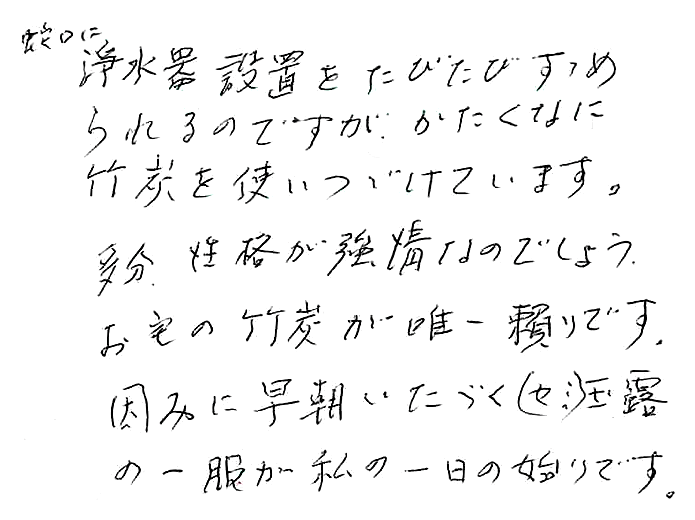 蛇口に
浄水器設置をたびたびすゝめ
られるのですが、かたくなに
竹炭を使いつづけています。
多分、性格が強情なのでしょう。
お宅の竹炭が唯一頼りです。
因みに早朝いたゞく 玉露
の一服が私の一日の始りです。